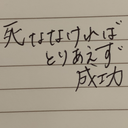 死ななければ
とりあえず
成功